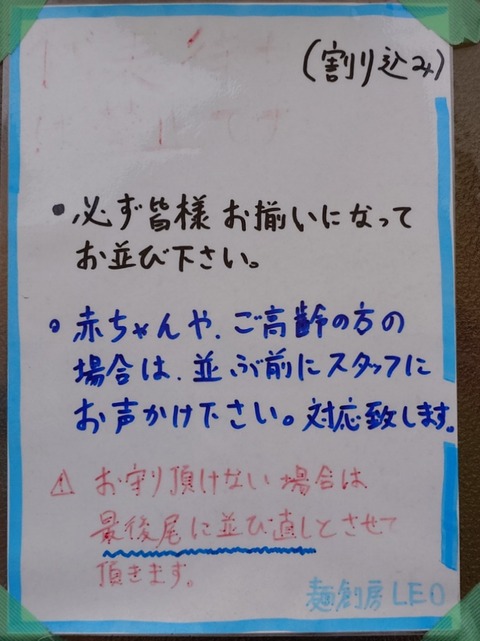 (割り込み)
は禁止です
• 必ず皆様 お揃いになって
お並び下さい。
• 赤ちゃんや、ご高齢の方の
場合は、並ぶ前にスタッフに
お声かけ下さい。対応致します。
⚠ お守り頂けない場合は
最後尾に並び直しとさせて
頂きます。
麺創房LEO